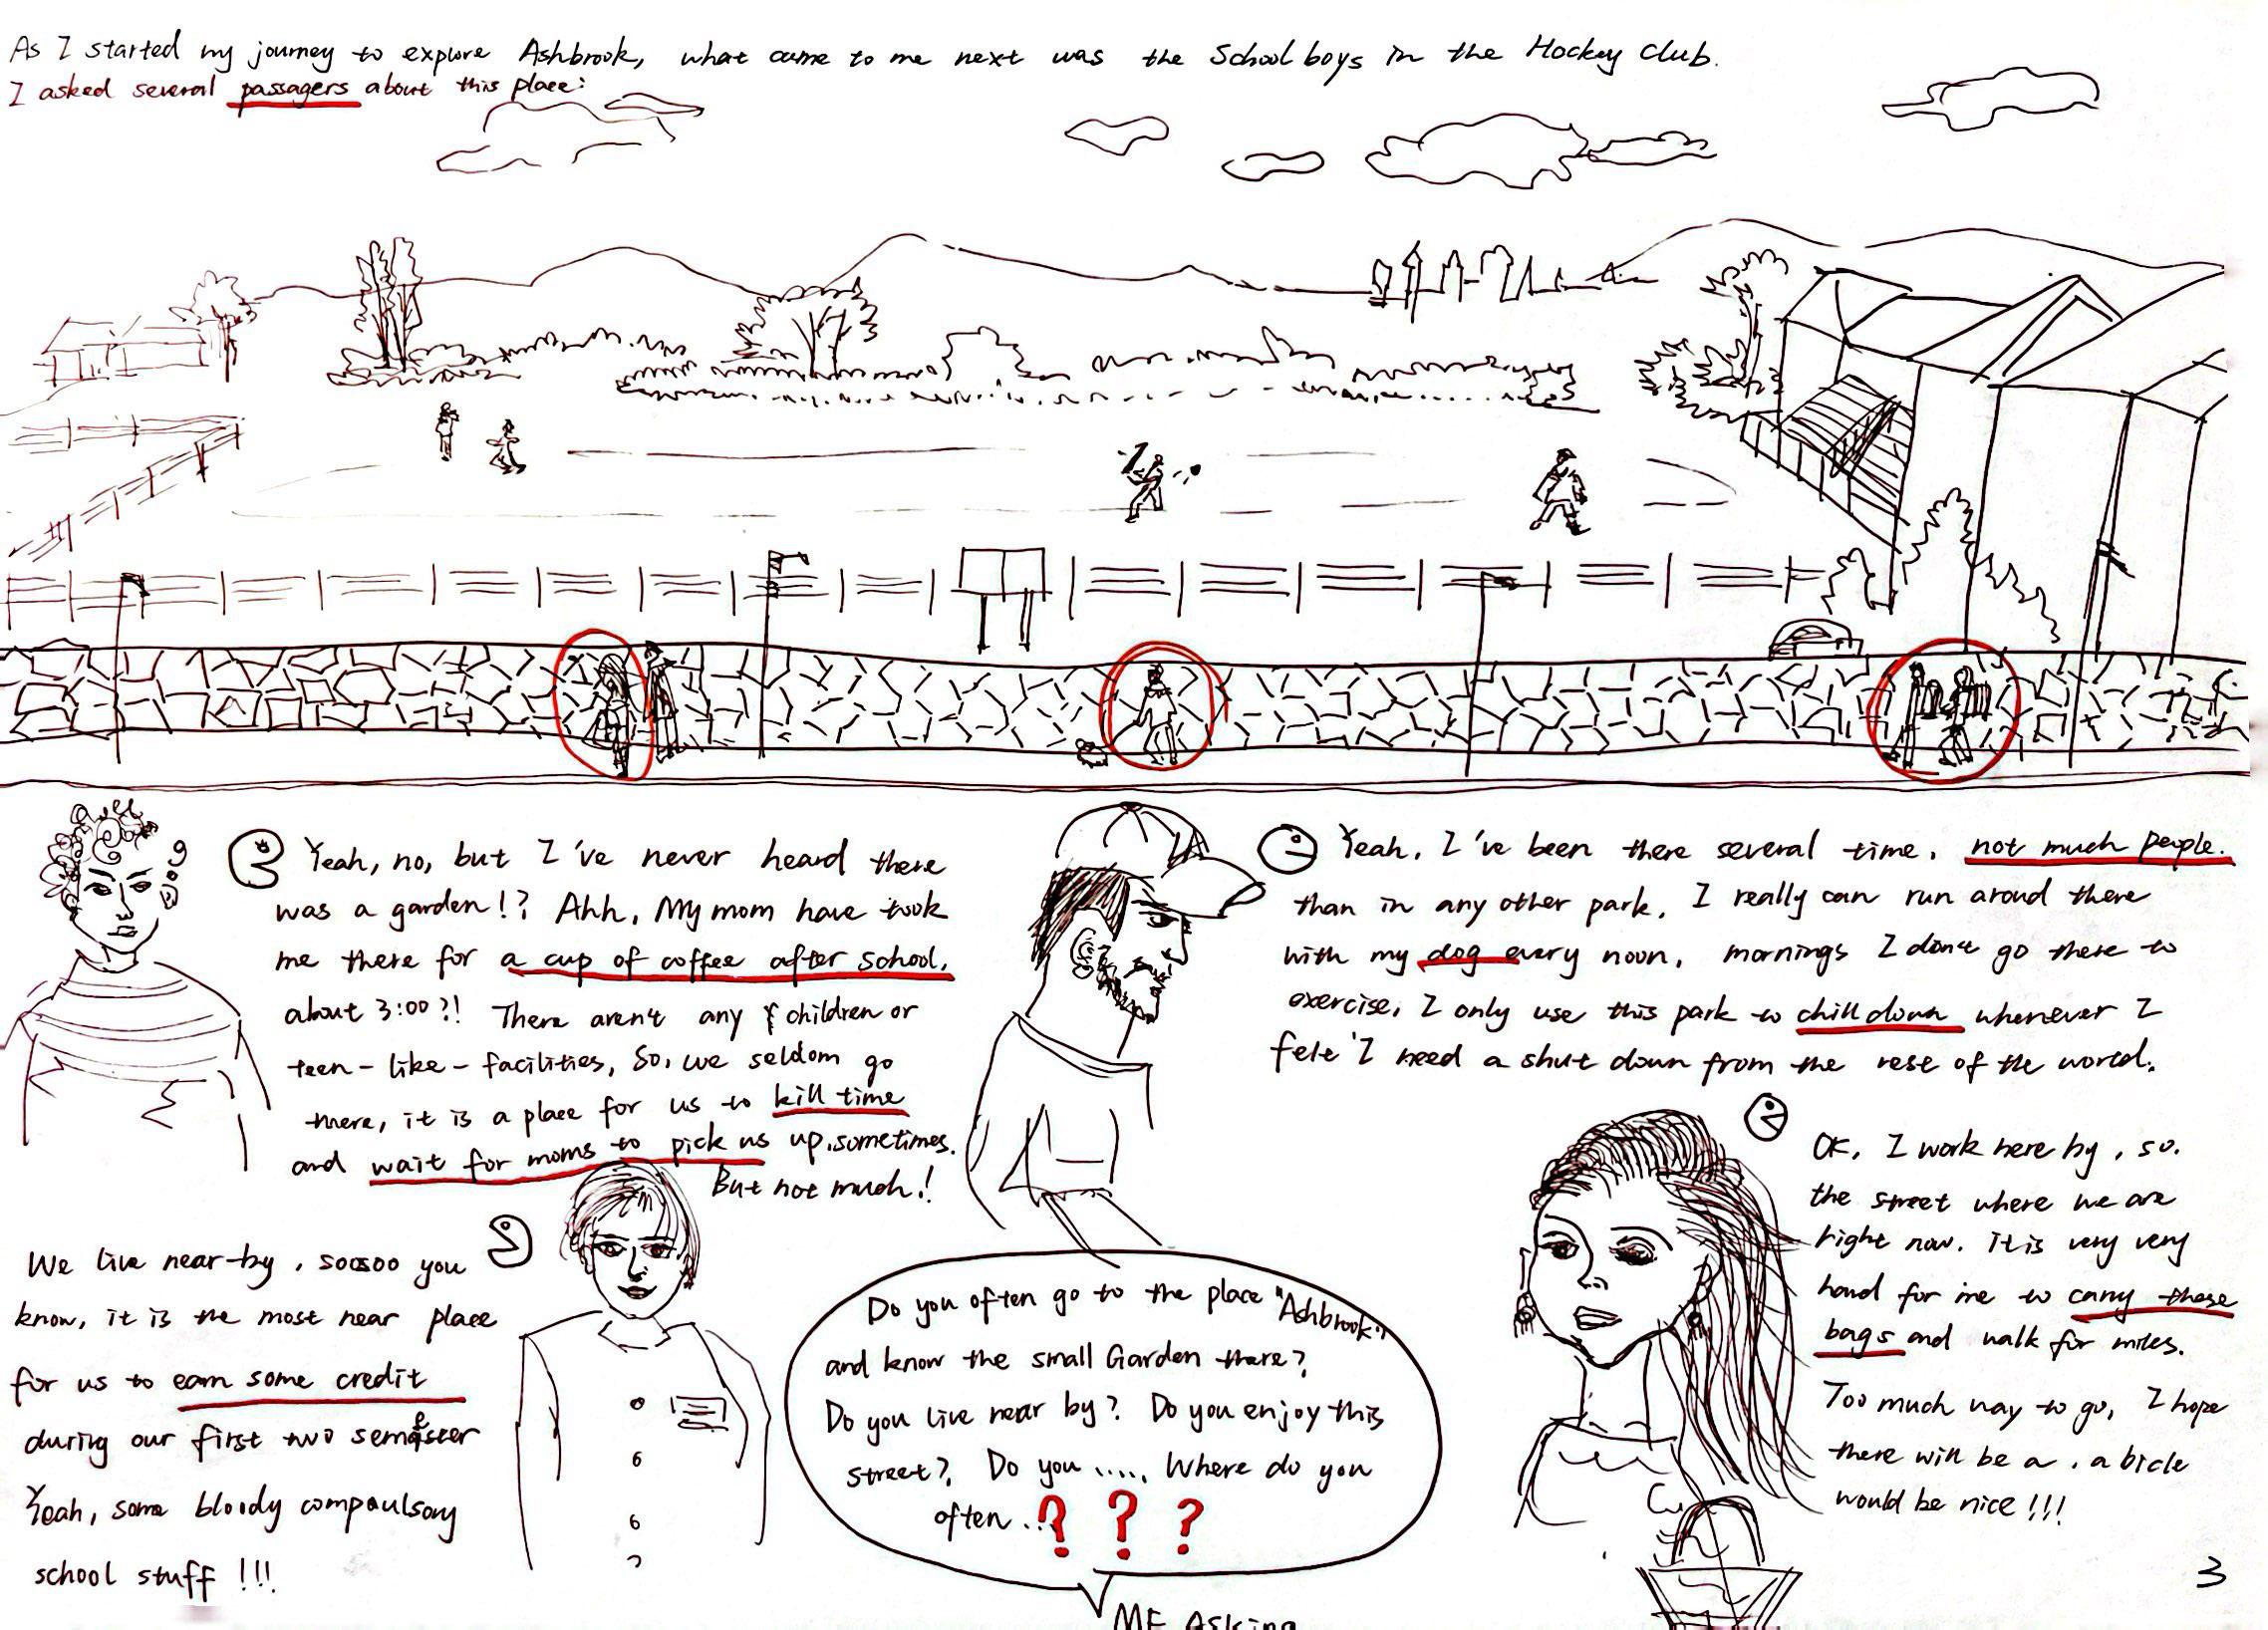 As I started my journey to explore Ashbrook, what came to me next was the School boys in the Hockey Club.
I asked several passagers about this place:
Yeah, no, but I've never heard there
was a garden!? Ahh, My mom have took
me there for a cup of coffee after school,
about 3:00?! There aren't any children or
teen-like-facilities, So, we seldom go
there, it is a place for us to kill time
and wait for moms to pick us up, sometimes.
But not much!
Yeah, I've been there several time, not much people.
than in any other park, I really can run aroud there
with my dog every noon, mornings I don't go there to
exercise, I only use this park to chill down whenever I
felt I need a shut down from the rest of the world.
We live near-by, soosoo you
know, it is the most near place
for us to earn some credit
during our first two semester
Yeah, some bloody compaulsory
school stuff !!!
Do you often go to the place "Ashbrook"
and know the small Garden there?
Do you live near by? Do you enjoy this
street?, Do you ..... Where do you
often ...? ? ?
ME Asking
OK, I work here by, so.
the street where we are
right now. it is very very
hard for me to carry these
bags and walk for miles.
Too much way to go, I hope
there will be a . a bicle
would be nice !!!
3